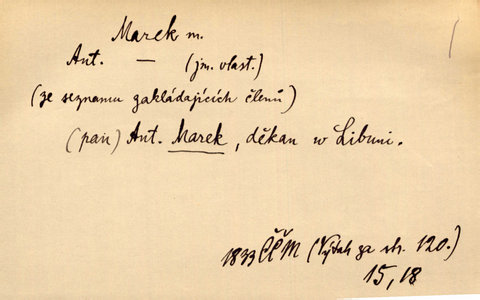 Marek m.
Ant. — (jm. vlast.)
(ze seznamu zakládajících členů)
(pan) Ant. Marek, děkan w Libuni.
1833 ČČM (Výtah za str. 120.)
15, 18